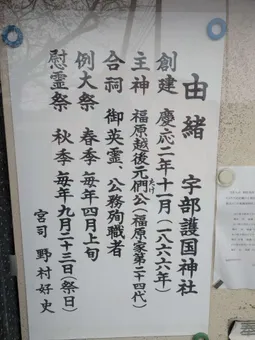 由緒 宇部護国神社
創建 慶応二年十一月(一八六六年)
主神 福原越後元僴公(福原家第二十四代)
合祠 御英霊、公務殉職者
例大祭 春季 毎年四月上旬
慰霊祭 秋季 毎年九月二十三日(祭日)
宮司 野村好史